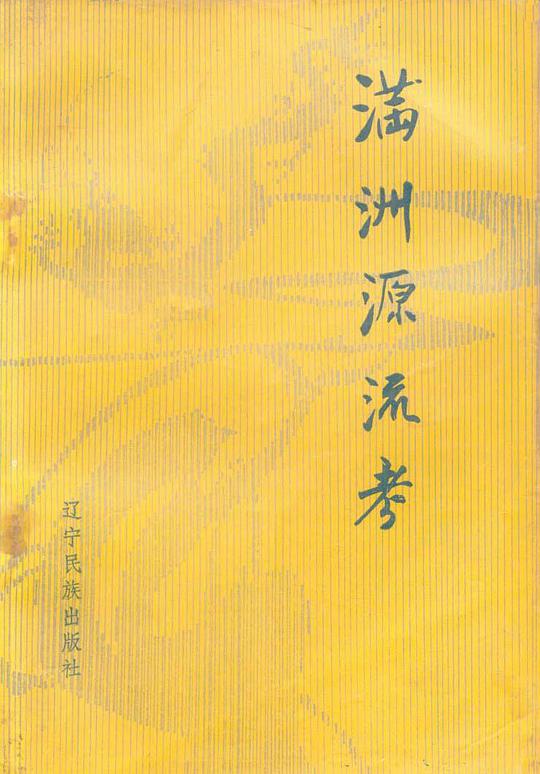 满洲源流考
辽宁民族出版社